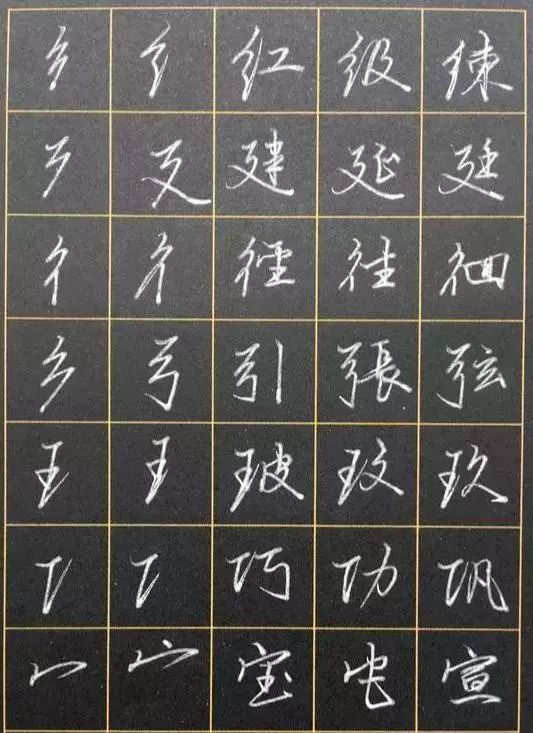 纟 纟 红 级 練
廴 廴 建 延 廷
彳 彳 徑 往 徊
弓 弓 引 張 弦
王 王 玻 玟 玖
工 工 巧 功 巩
宀 宀 宝 宣